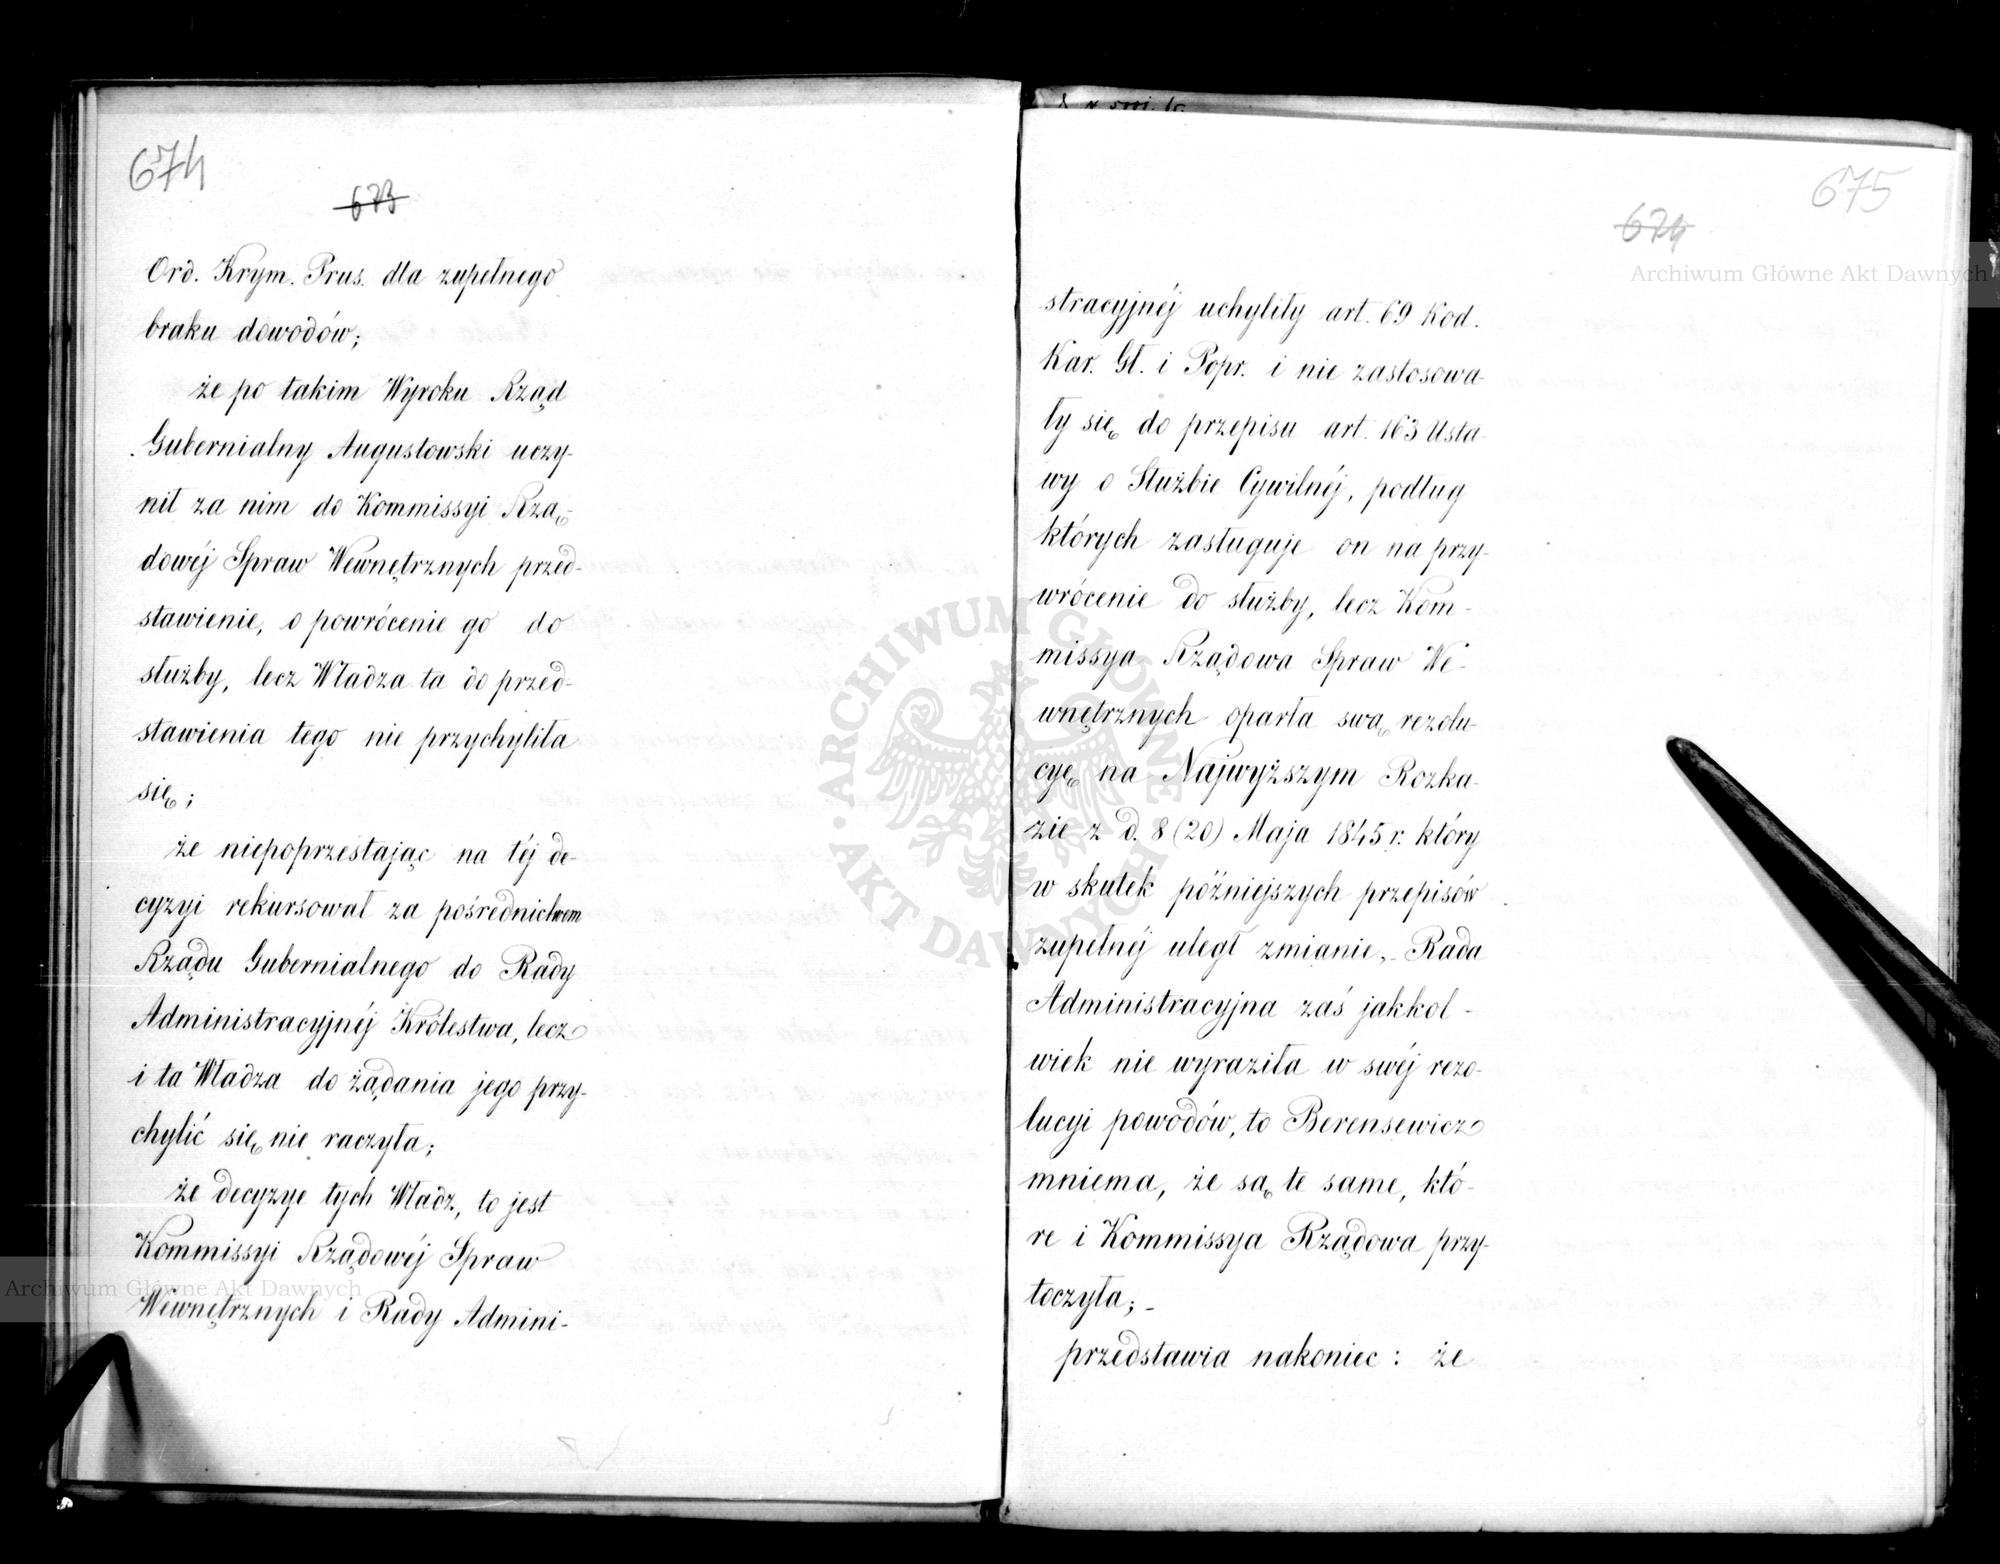 674
673
Ord. Krym. Prus. dla zupełnego
braku dowodów;
że po takim Wyroku Rząd
Gubernialny Augustowski uczy-
nił za nim do Kommissyi Rzą-
dowéj Spraw Wewnętrznych przed-
stawienie, o powrócenie go do
służby, lecz Władza ta do przed-
stawienia tego nie przychyliła
się;
że niepoprzestając na téj de-
cyzyi rekursował za pośrednictwem
Rządu Gubernialnego do Rady
Administracyjnéj Królestwa, lecz
i ta Władza do żądania jego przy-
chylić się nie raczyła;
że decyzye tych Władz, to jest
Kommissyi Rządowéj Spraw
Wewnętrznych i Rady Admini-
675
674
stracyjnéj uchyliły art. 69 Kod.
Kar. Gł. i Popr. i nie zastosowa-
ły się do przepisu art. 163 Usta-
wy o Służbie Cywilnéj, podług
których zasługuje on na przy-
wrócenie do służby, lecz Kom-
missya Rządowa Spraw We-
wnętrznych oparła swą rezolu-
cyę na Najwyższym Rozka-
zie z d. 8 (20) Maja 1845 r. który
w skutek późniejszych przepisów
zupełnéj uległ zmianie,- Rada
Administracyjna zaś jakkol-
wiek nie wyraziła w swéj rezo-
lucyi powodów, to Berensewicz
mniema, że są te same, któ-
re i Kommissya Rządowa przy-
toczyła;-
przedstawia nakoniec: że
Archiwum Główne Akt Dawnych
Archiwum Główne Akt Dawnych
ARCHIWUM GŁÓWNE AKT DAWNYCH